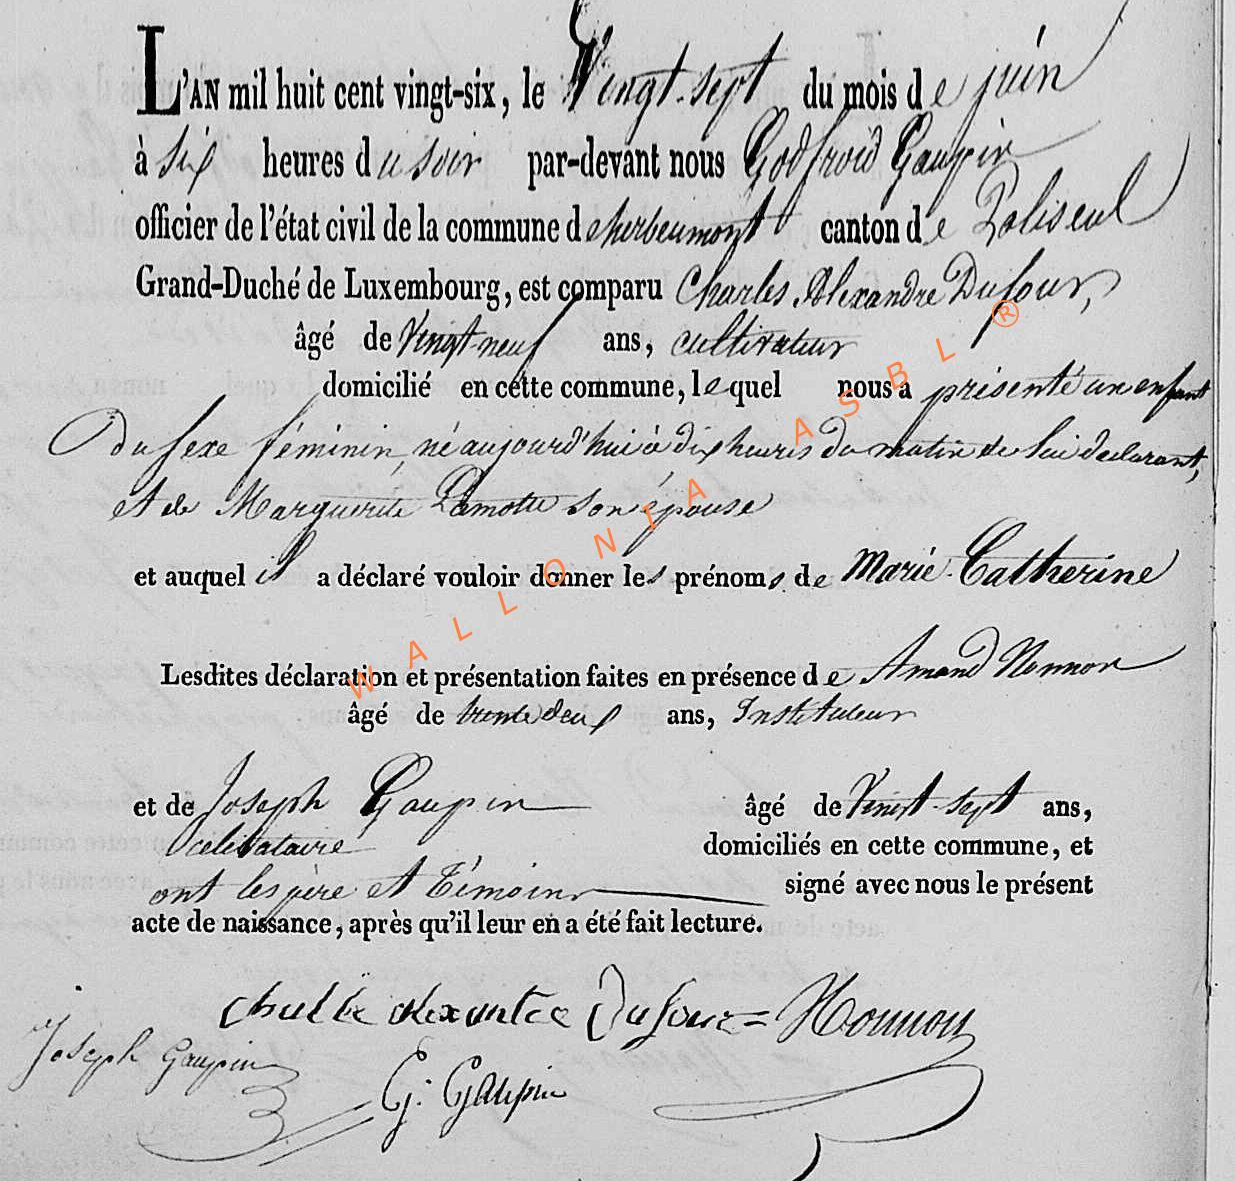 L'AN mil huit cent vingt-six, le Vingt-sept du mois de juin
à six heures du soir par-devant nous Godfroid Gaupin
officier de l'état civil de la commune d'herbeumont canton de Paliseul
Grand-Duché de Luxembourg, est comparu Charles Alexandre Dufour,
âgé de Vingt neuf ans, cultivateur
domicilié en cette commune, lequel nous a présenté un enfant
Du sexe féminin, né aujourd'hui à dix heures du matin de lui declarant,
et de Marguerite Lamotte son épouse
et auquel il a déclaré vouloir donner les prénoms de Marie-Catherine
Lesdites déclaration et présentation faites en présence de Amand Nonnon
âgé de trente deux ans, Instituteur
et de Joseph Gaupin âgé de Vingt-sept ans,
celibataire domiciliés en cette commune, et
ont les père et Témoins signé avec nous le présent
acte de naissance, après qu'il leur en a été fait lecture.
alexantre Dufour = Nonnon
Joseph Gaupin
G. Gaupin
WALLONIA ASBL ®